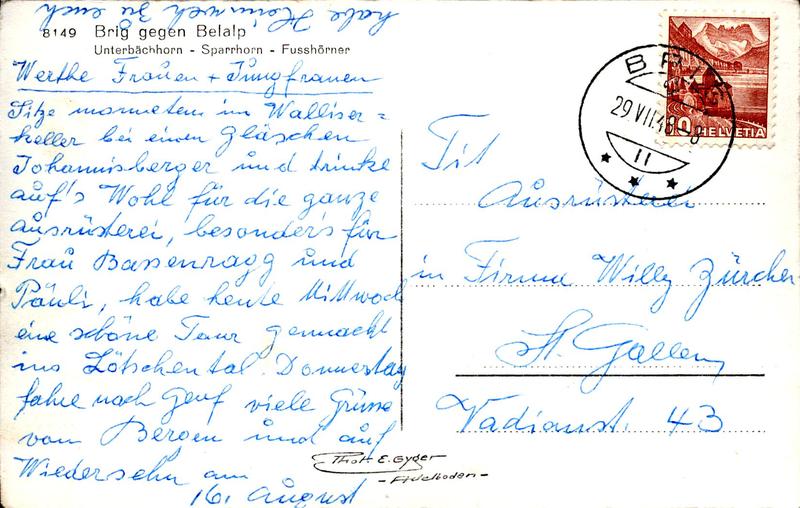 habe Heimweh zu euch
8149 Brig gegen Belalp
Unterbächhorn - Sparrhorn - Fusshörner
Werthe Frauen + Jungfrauen
Sitze momentem im Walliser =
keller bei einen Gläschen
Johannisberger und trinke
auf's Wohl für die ganze
Ausrüsterei, besonders für
Frau Bassenragg und
Päuli, habe heute Mittwoch
eine schöne Tour gemacht
ins Lötschental. Donnerstag
fahre nach Genf viele Grüsse
vom Bergen und auf
Wiedersehn am
16. August
Phot. E. Gyger
- Adelboden -
BRIG
29 VII. 18-8
II
10 HELVETIA
Tit
Ausrüsterei
in Firma Willy Zürcher
St. Gallen
Vadianst. 43